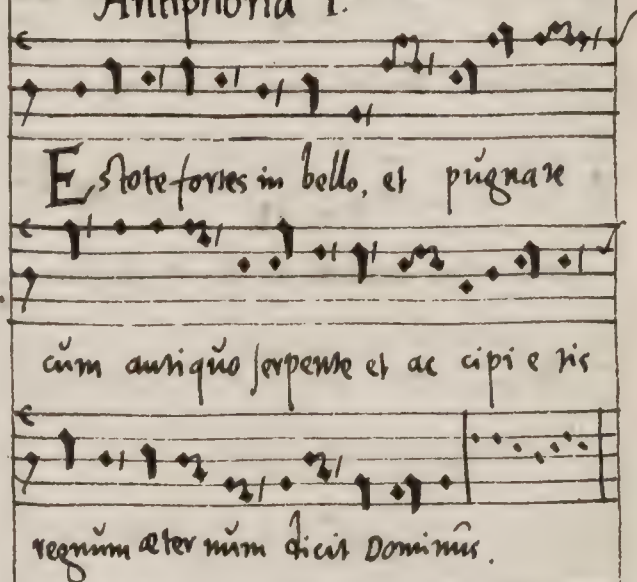 Antiphona 1.
Estote fortes in bello, et pugnare
cum antiquo serpente et ac cipi e tis
regnum æter num dicit Dominus.